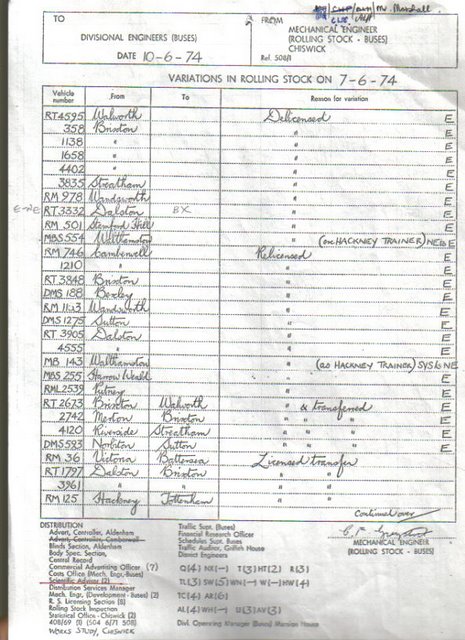 M. Marshall
TO FROM
DIVISIONAL ENGINEERS (BUSES) MECHANICAL ENGINEER
(ROLLING STOCK - BUSES)
CHISWICK
DATE 10-6-74 Ref. 508/1
VARIATIONS IN ROLLING STOCK ON 7-6-74
Vehicle number From To Reason for variation
RT4595 Walworth Delicensed E
358 Brixton " E
1138 " " E
1658 " " E
4402 " " E
3835 Streatham " E
RM 978 Wandsworth " E
RT.3332 Dalston BX " E
RM 501 Stamford Hill " E
MBS 554 Walthamstow " (one HACKNEY TRAINER) E
RM 746 Camberwell Relicensed E
1210 " " E
RT 3848 Brixton " E
DMS 188 Bexley " E
RM Wandsworth " E
DMS 1275 Sutton " E
RT 3905 Dalston " E
4555 " " E
MB 143 Walthamstow " (as HACKNEY TRAINER)
MBS 255 Harrow Weald " E
RML 2539 Putney " E
RT 2673 Brixton Walworth " & transferred E
2742 Merton Brixton " " " E
4120 Riverside Streatham " " " E
DMS 593 Norbiton Sutton " " " E
RM 36 Victoria Battersea Licensed transfer
RT 1797 Dalston Brixton " "
3961 " " " "
RM 125 Hackney Tottenham " "
continued over
MECHANICAL ENGINEER
(ROLLING STOCK - BUSES)
DISTRIBUTION
Advert. Controller, Aldenham
Advert. Controller, Camberwell
Blinds Section, Aldenham
Body Spec. Section,
Central Record
Commercial Advertising Officer (7)
Costs Office (Mech. Engr. Buses)
Scientific Advisor (2)
Distribution Services Manager
Mech. Engr. (Development - Buses) (2)
R. S. Licensing Section (8)
Rolling Stock Inspection
Statistical Office - Chiswick (2)
408/69 (1) (504 6/71 508)
WORKS STUDY, CHISWICK
Traffic Supt. (Buses)
Financial Research Officer
Schedules Supt. Buses
Traffic Auditor, Griffith House
District Engineers
Q(4) NX(-) T(3) HT(2) R(3)
TL(3) SW(5) WN(-) W(-) HW(4)
TC(4) AR(6)
AL(4) WH(-) U(3) AV(3)
Divl. Operating Manager (Buses) Mansion House